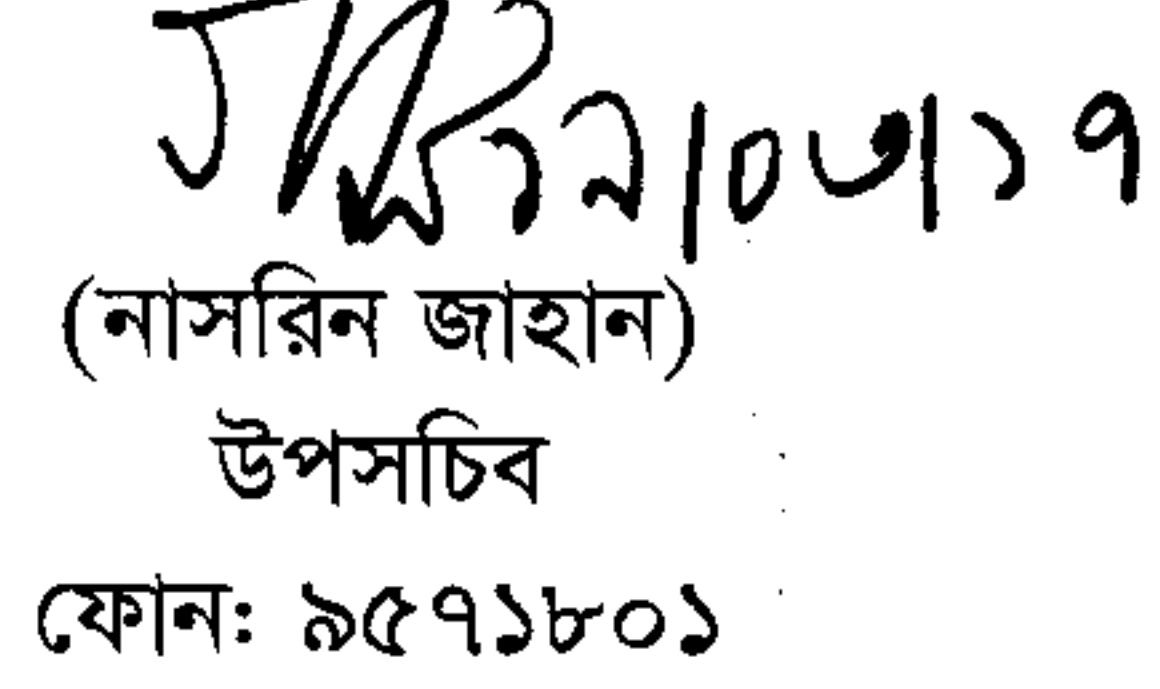 ১২/০৩/১৭
(নাসরিন জাহান)
উপসচিব
ফোন: ৯৫৭১৮০১